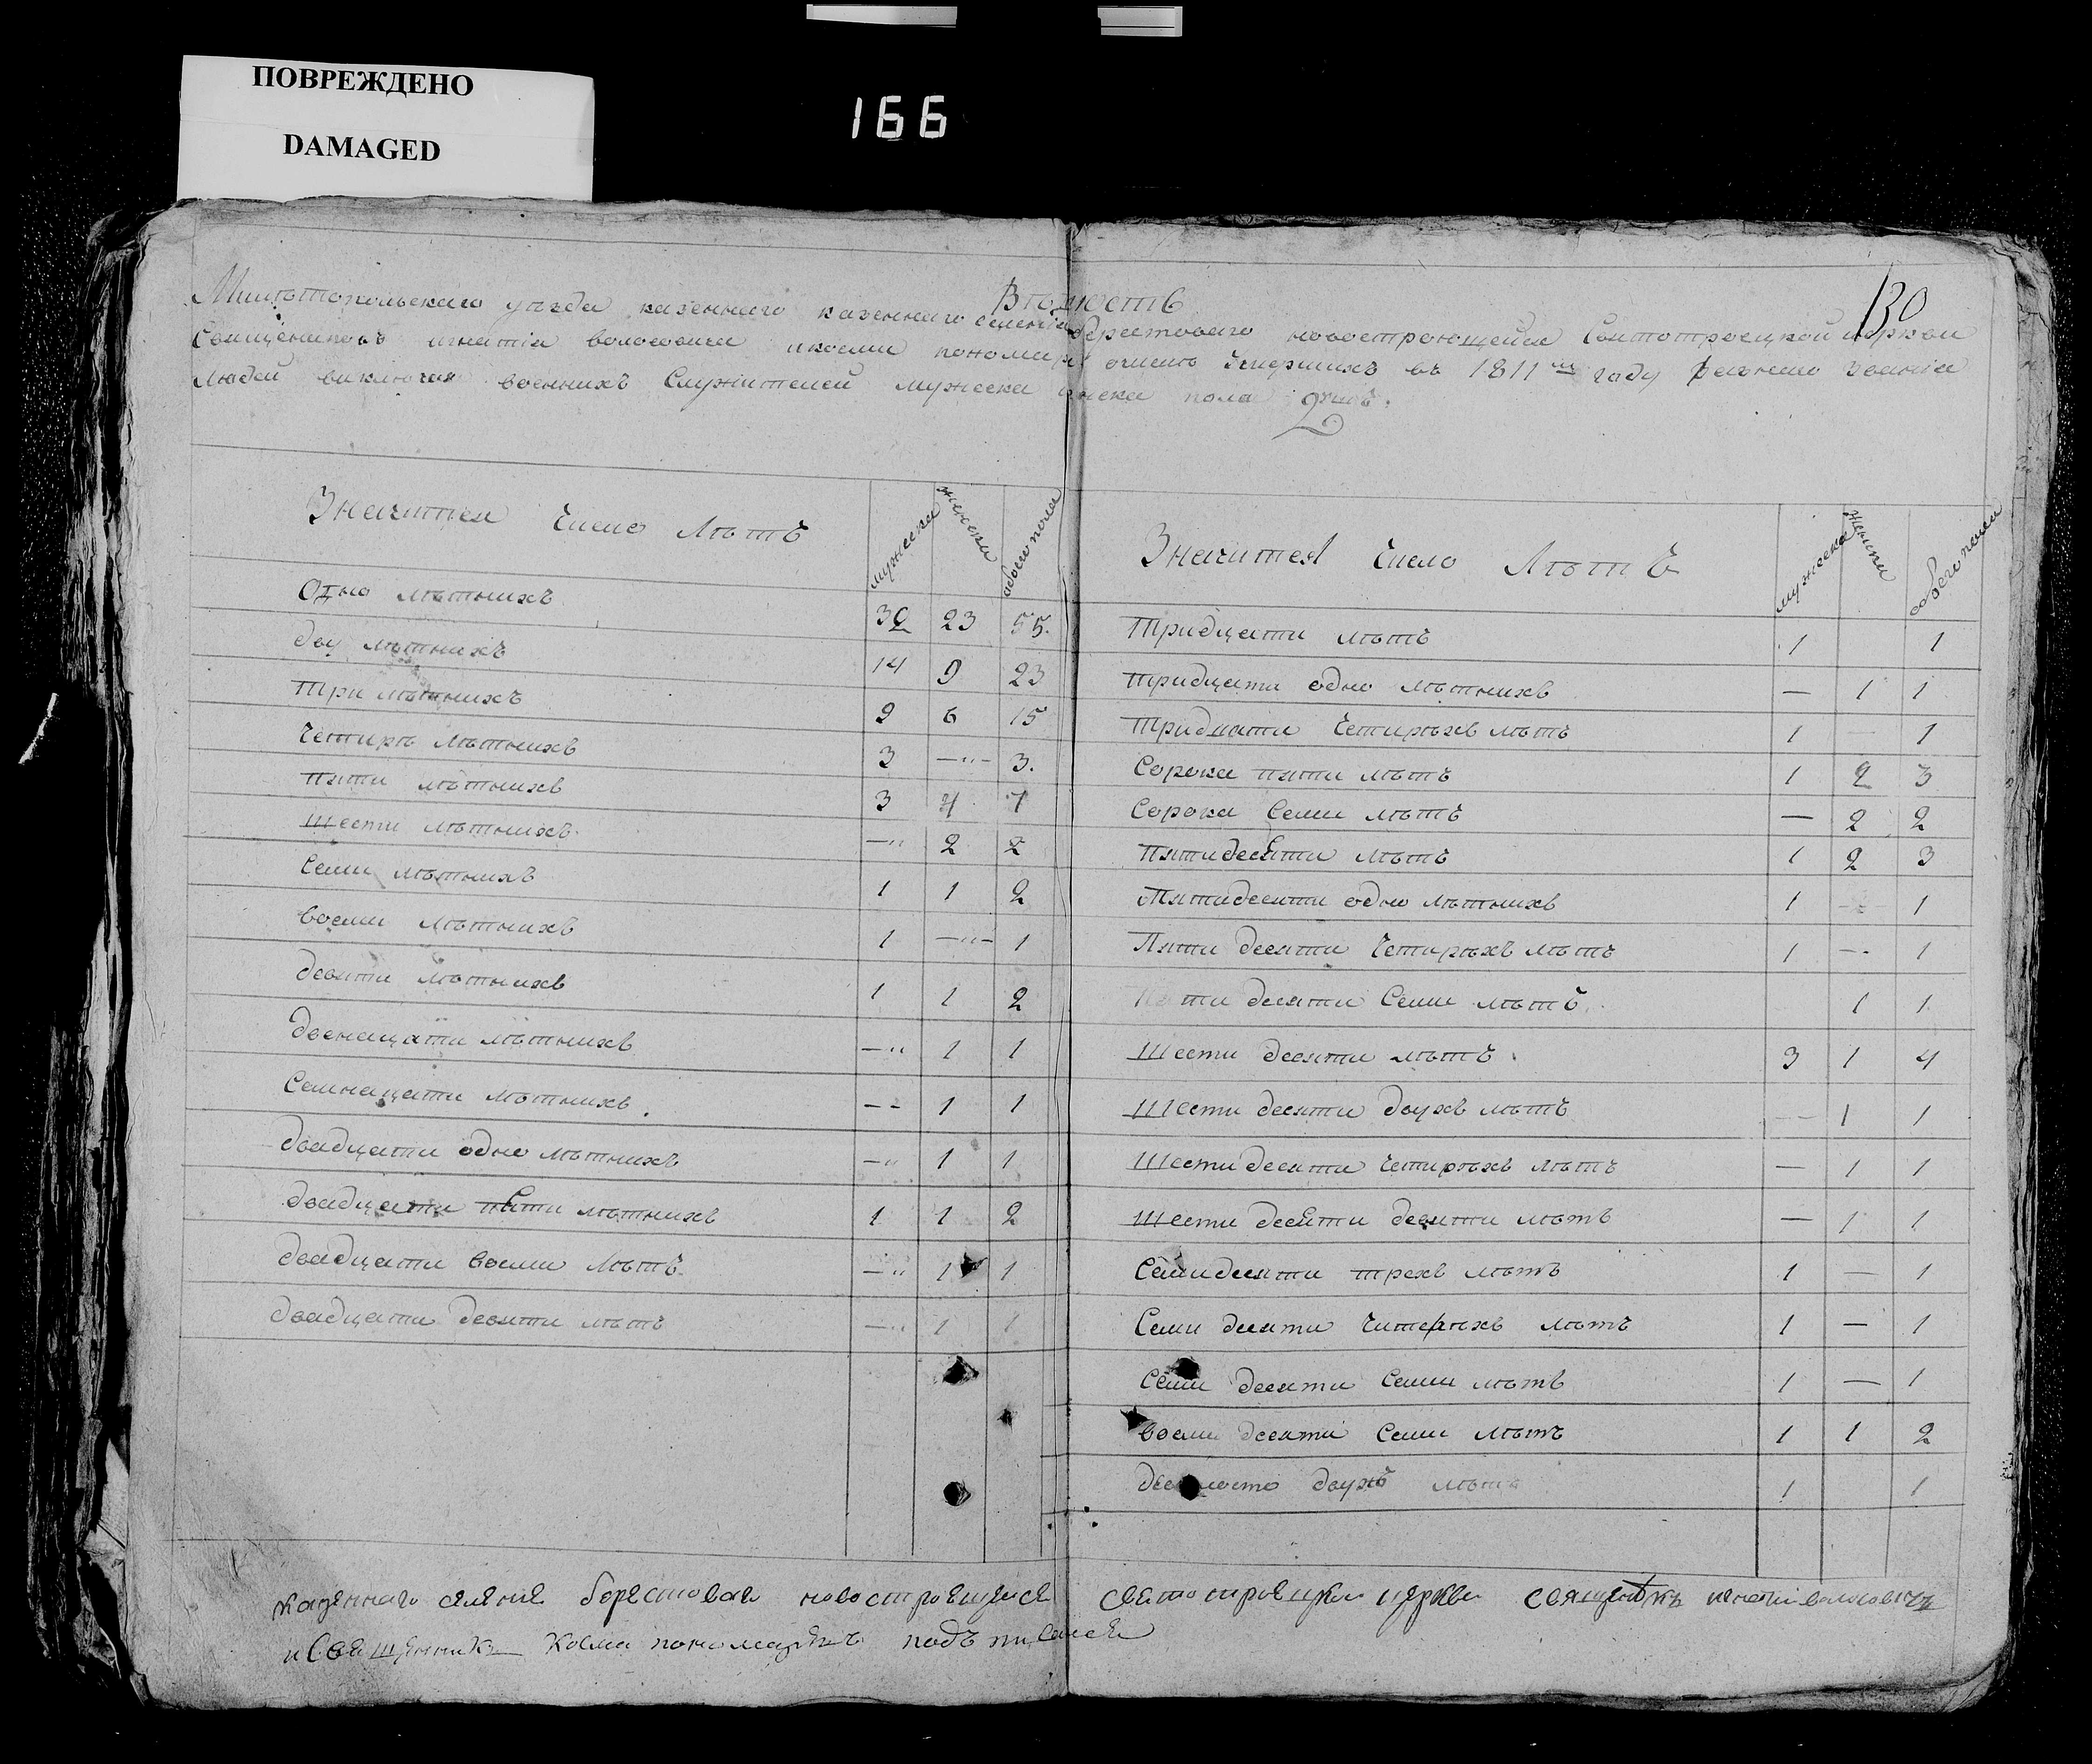 ПОВРЕЖДЕНО
DAMAGED
166
130
Вѣдомость
Мелитопольскаго уѣзда казеннаго казеннаго селенія Берестоваго новостроющейся Святотроецкой церкви
Священиковъ игнатія волосовича икосми пономар очисле умершихъ въ 1811мъ году разнаго званія
людей виключая военнихъ Служителей мужеска женска пола душъ.
Значится Число Лѣтъ мужеска женска обоего пола
Одно лѣтнихъ 32 23 55.
дву лѣтнихъ 14 9 23
три лѣтнихъ 9 6 15
Четирѣ лѣтнихъ 3 —"— 3.
пяти лѣтнихъ 3 4 7
шести лѣтнихъ —" 2 2
Семи лѣтнихъ 1 1 2
восми лѣтнихъ 1 —"— 1
девяти лѣтнихъ 1 1 2
двенацати лѣтнихъ —" 1 1
Семнацати лѣтнихъ —- 1 1
двадцати одно лѣтнихъ —" 1 1
двадцати пяти лѣтнихъ 1 1 2
двадцати восми лѣтъ —" 1 1
двадцати девяти лѣтъ —" 1 1
Значится Число Лѣтъ мужеска женска обоего пола
Тридцати лѣтъ 1 1
тридцати одно лѣтнихъ — 1 1
тридцати Четирѣхъ лѣтъ 1 — 1
Сорока пяти лѣтъ 1 2 3
Сорока Семи лѣтъ — 2 2
пятидесяти лѣтъ 1 2 3
Пятидесяти одно лѣтнихъ 1 — 1
Пяти десяти Четирѣхъ лѣтъ 1 — 1
Пяти десяти Семи лѣтъ 1 1
Шести десяти лѣтъ 3 1 4
Шести десяти двухъ лѣтъ — 1 1
Шестидесяти Четирѣхъ лѣтъ — 1 1
Шести десяти девяти лѣтъ — 1 1
Семидесяти трехъ лѣтъ 1 — 1
Семи десяти Читерѣхъ лѣтъ 1 — 1
Семи десяти Семи лѣтъ 1 — 1
восми десяти Семи лѣтъ 1 1 2
девяносто двухъ лѣтъ 1 1
казеннаго селеня берестоваго новостроящейся святотроецкои церкви священикъ игнатіи волосовичъ
и Священникъ Косма пономаревъ подъписался